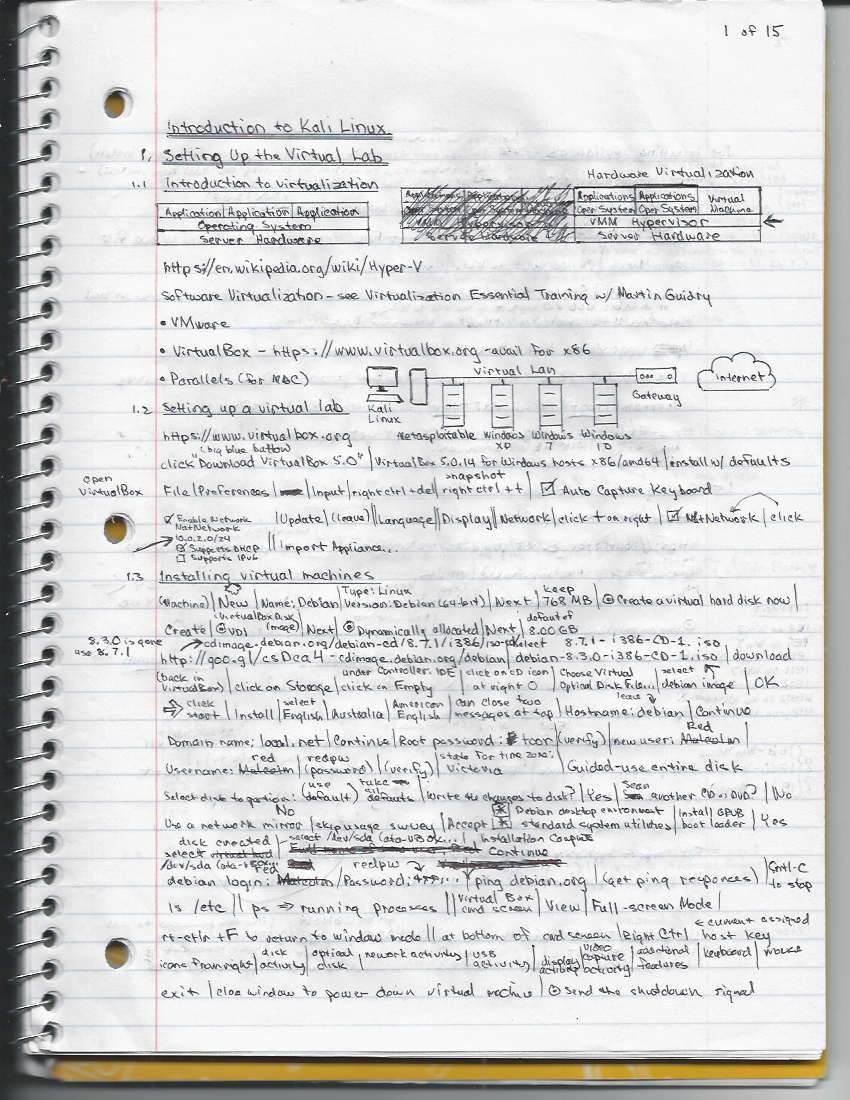 1 of 15
Introduction to Kali Linux
1. Setting Up the Virtual Lab
Hardware Virtualization
1.1 Introduction to virtualization
Application | Application | Application
Operating System
Server Hardware
Applications | Applications | Virtual Machine
Oper System | Oper System
VMM Hypervisor
Server Hardware
https://en.wikipedia.org/wiki/Hyper-V
Software Virtualization - see Virtualization Essential Training w/ Martin Guidry
• VMware
• VirtualBox - https://www.virtualbox.org - avail for x86
• Parallels (for MAC)
Virtual Lan
Internet
Gateway
Kali Linux
Metasploitable Windows XP Windows 7 Windows 10
1.2 Setting up a virtual lab
https://www.virtualbox.org
(big blue button)
click "Download VirtualBox 5.0" | VirtualBox 5.0.14 for Windows hosts x86/amd64 | install w/ defaults
Open VirtualBox
snapshot
File | Preferences | Input | right ctrl + del | right ctrl + + | ☑ Auto Capture Keyboard
☑ Enable Network
NatNetwork
|Update| (leave) ||Language||Display||Network|click + on right | ☑ NatNetwork | click
10.0.2.0/24
☑ Supports DHCP
☐ Supports IPv6
|| Import Appliance...
1.3 Installing virtual machines
Type: Linux
keep
(Machine) | New | Name: Debian | Version: Debian (64-bit) | Next | 768 MB | ⊙ Create a virtual hard disk now |
(VirtualBox Disk Image)
default of
Create | ⊙ VDI | Next | ⊙ Dynamically allocated | Next | 8.00 GB
8.3.0 is gone
use 8.7.1
cdimage.debian.org/debian-cd/8.7.1/i386/iso-cd select 8.7.1-i386-CD-1.iso
http://goo.gl/csDca4 - cdimage.debian.org/debian | debian-8.3.0-i386-CD-1.iso | download
(back in VirtualBox) | click on Storage | under Controller: IDE click on Empty | click on CD icon at right | Choose Virtual Optical Disk File... | select debian image | OK
leave
⇨ click start | Install | select English | Australia | American English | can close two messages at top | Hostname: debian | Continue
Red
Domain name: local.net | Continue | Root password: toor | (verify) | new user: Malcolm |
red redpw state for time zone:
Username: Malcolm | (password) | (verify) | Victoria | Guided - use entire disk
Select disk to partition: (use default) | take defaults | Write the changes to disk? | Yes | Scan another CD or DVD? | No
No
☒ Debian desktop environment | Install GRUB
Use a network mirror | skip usage survey | Accept | ☒ standard system utilities | boot loader | Yes
disk created | select /dev/sda (ata-VBox... | Installation Complete
select virtual hard
Continue
/dev/sda (ata-VBox...
red redpw
debian login: Malcolm / Password: | ping debian.org | (get ping responses) | Cntl-C to stop
ls /etc || ps ⇒ running processes || Virtual Box cmd screen | View | Full-screen Mode |
← current assigned
rt-ctln + F to return to window mode || at bottom of cmd screen | Right Ctrl host key
icons from right | disk activity | optical disk | network activity | USB activity | display activity | video capture activity | additional features | keyboard | mouse
exit | close window to power down virtual machine | ⊙ Send the shutdown signal